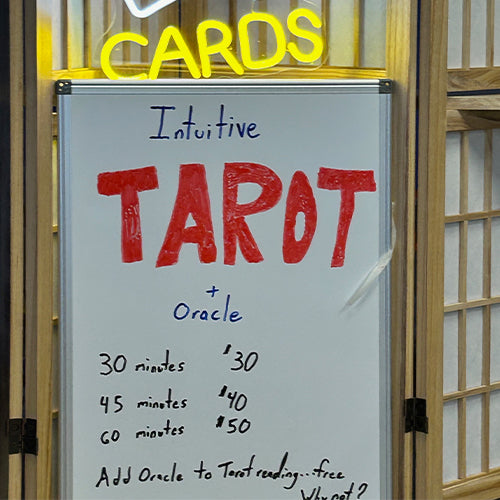 CARDS
Intuitive
TAROT
+
Oracle
30 minutes $30
45 minutes $40
60 minutes $50
Add Oracle to Tarot reading...free
Why not?